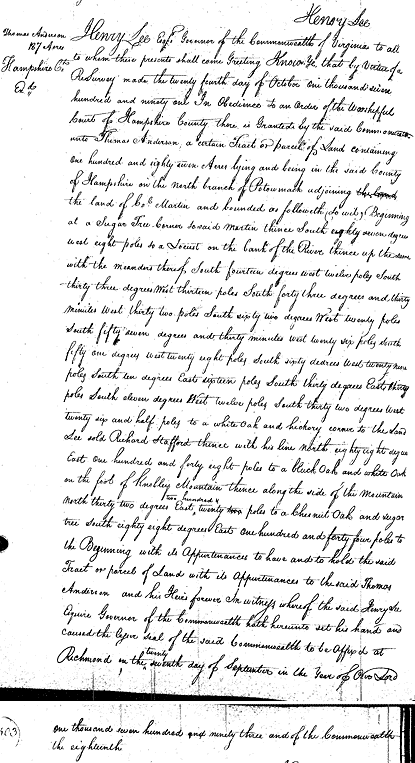 Henry Lee
Thomas Anderson
187 Acres
Hampshire Cty
Henry Lee Esqr. Governor of the Commonwealth of Virginia to all
to whom these presents shall come Greeting Know Ye that by Virtue of a
ReSurvey made the twenty fourth day of October one thousand seven
hundred and ninety one In Obedience to an Order of the Worshipful
Court of Hampshire County there is Granted by the said Commonwealth
unto Thomas Anderson, a certain Tract or parcel of Land containing
One hundred and eighty seven Acres lying and being in the said County
of Hampshire on the North branch of Potowmack adjoining the land
the land of Col. Martin and bounded as followeth, to wit, Beginning
at a Sugar Tree Corner to said Martin thence South eighty seven degrees
west eight poles to a Locust on the bank of the River thence up the same
with the meanders thereof, South fourteen degrees west twelve poles South
thirty three degrees West thirteen poles South forty three degrees and thirty
minutes West thirty two poles South sixty two degrees West twenty poles
South fifty seven degrees and thirty minutes west twenty six poles South
fifty one degrees west twenty eight poles South sixty dedrees West twenty nine
poles South ten degrees East sixteen poles South thirty degrees East thirty
poles South eleven degrees West twelve poles South thirty two degrees West
twenty six and half poles to a white Oak and hickory corner to the Land
Lee sold Richard Stafford thence with his line North eighty eight degrees
East one hundred and forty eight poles to a black Oak and white Oak
on the foot of Knobley Mountain thence along the side of the Mountain
North thirty two degrees East, two hundred & twenty two poles to a Chesnut Oak and sugar
tree South eighty eight degrees East one hundred and forty four poles to
the Beginning with its Appurtenances to have and to hold the said
Tract or parcel of Land with its Appurtenances to the said Thomas
Anderson and his Heirs forever In witness whereof the said Henry Lee
Equire Governor of the Commonwealth hath hereunto set his hand and
caused the Lesser Seal of the said Commonwealth to be Affixed at
Richmond on the twenty seventh day of September in the Year of Our Lord
one thousand seven hundred and ninety three and of the Commonwealth
the eighteenth